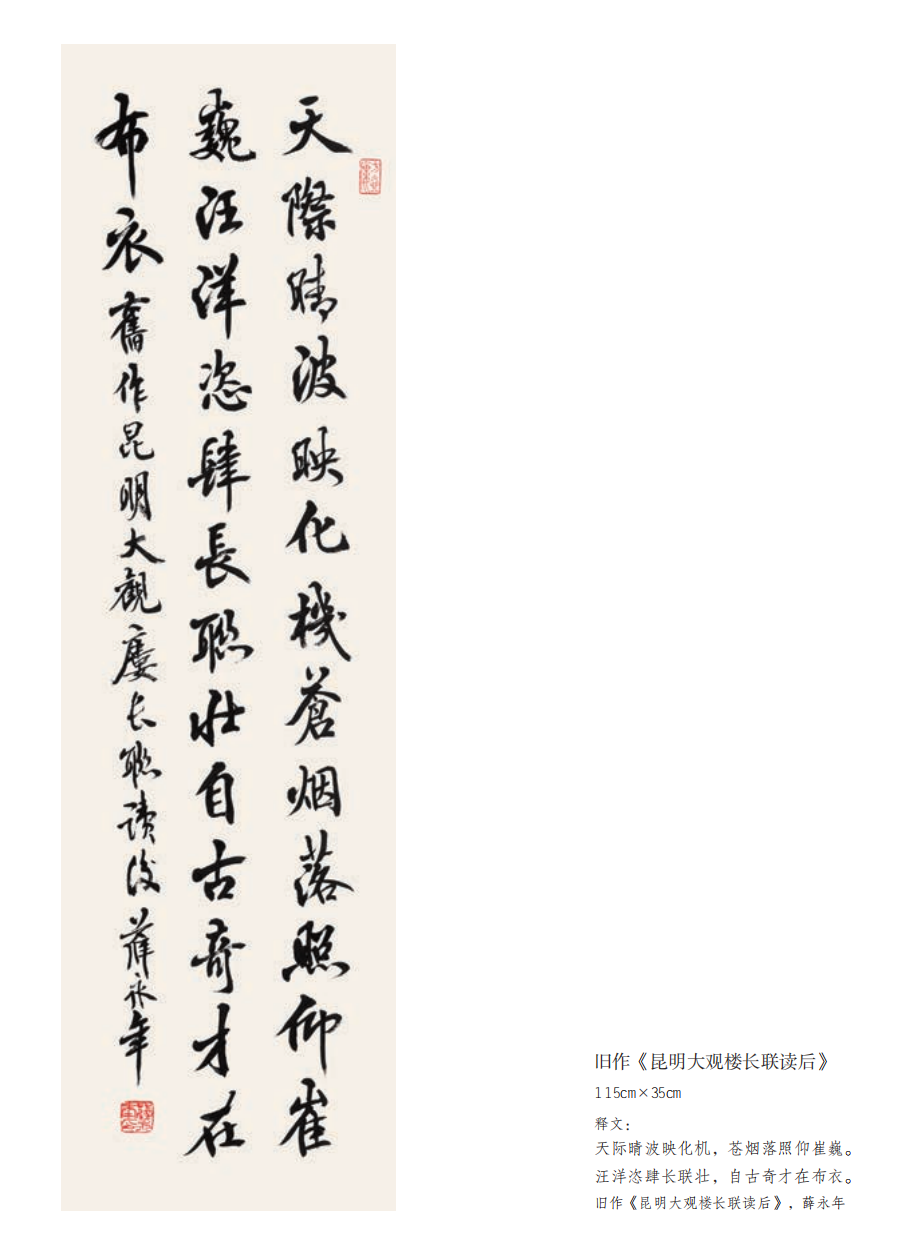 天際晴波映化機蒼烟落照仰崔
巍汪洋恣肆長聯壯自古奇才在
布衣舊作昆明大觀廔长聯讀後薛永年
旧作《昆明大观楼长联读后》
115cm×35cm
释文：
天际晴波映化机，苍烟落照仰崔巍。
汪洋恣肆长联壮，自古奇才在布衣。
旧作《昆明大观楼长联读后》，薛永年